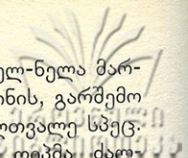 ელ-ნელა მარ-
ინის, გარშემო
ლთვალე სპეც.